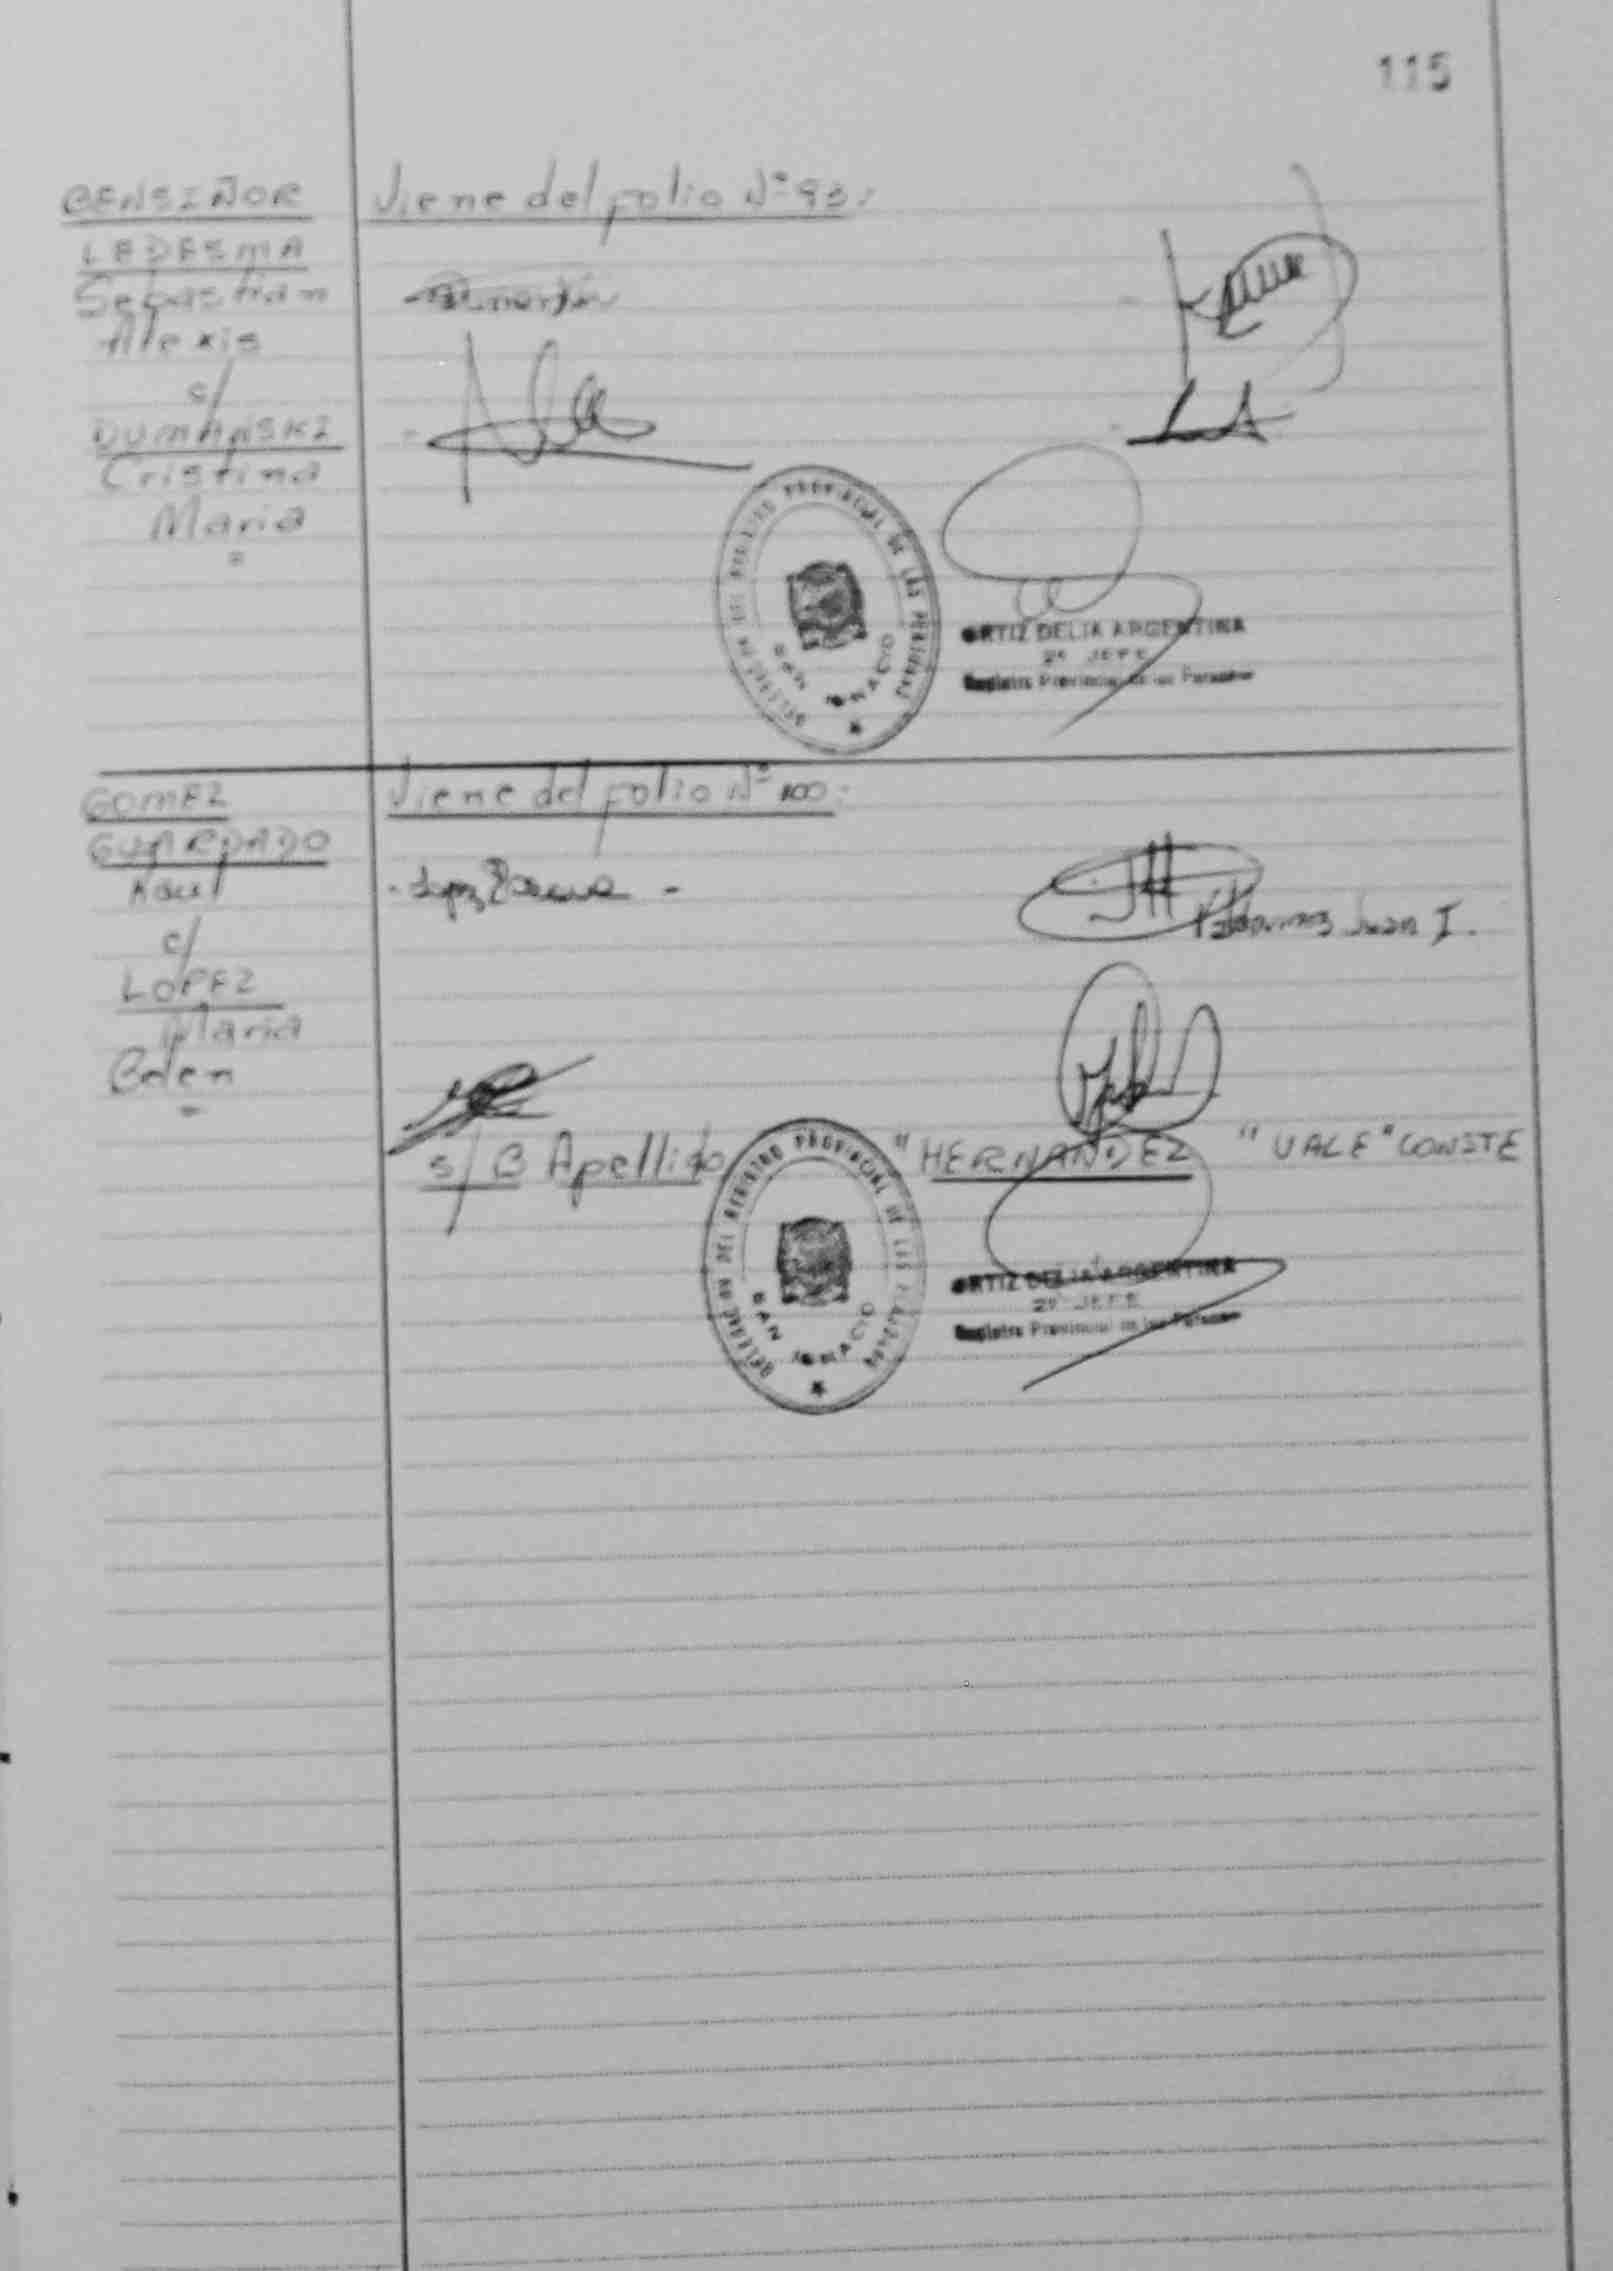 115
BENSIÑOR
LEDESMA
Sebastian
Alexis
c/
DUMAŃSKI
Cristina
Maria
Viene del folio Nº 93:
DELEGACION DEL REGISTRO PROVINCIAL DE LAS PERSONAS
SAN IGNACIO
ORTIZ DELIA ARGENTINA
2º JEFE
Registro Provincial de las Personas
GOMEZ
GUARDADO
Raul
c/
LOPEZ
Maria
Belen
Viene del folio Nº 100:
Juan I.
s/ B Apellido "HERNANDEZ "VALE" CONSTE
DELEGACION DEL REGISTRO PROVINCIAL DE LAS PERSONAS
SAN IGNACIO
ORTIZ DELIA ARGENTINA
2º JEFE
Registro Provincial de las Personas